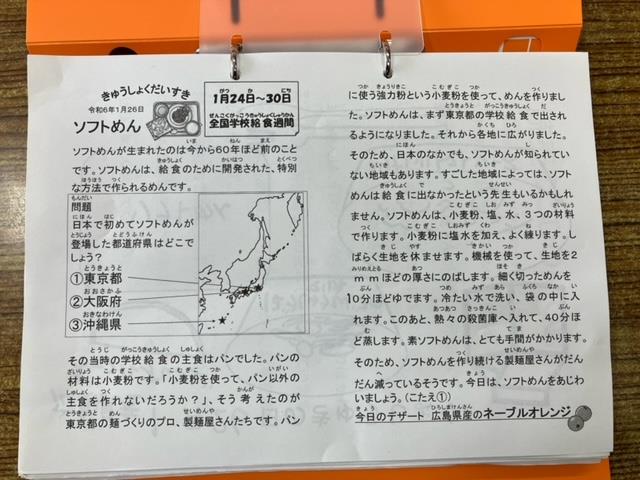 きゅうしょくだいすき
令和6年1月26日
ソフトめん
1月24日～30日
全国学校給食週間
ソフトめんが生まれたのは今から60年ほど前のこと
です。ソフトめんは、給食のために開発された、特別
な方法で作られるめんです。
問題
日本で初めてソフトめんが
登場した都道府県はどこで
しょう？
①東京都
②大阪府
③沖縄県
その当時の学校給食の主食はパンでした。パンの
材料は小麦粉です。「小麦粉を使って、パン以外の
主食を作れないだろうか？」、そう考えたのが
東京都の麺づくりのプロ、製麺屋さんたちです。パン
に使う強力粉という小麦粉を使って、めんを作りまし
た。ソフトめんは、まず東京都の学校給食で出され
るようになりました。それから各地に広がりました。
そのため、日本のなかでも、ソフトめんが知られてい
ない地域もあります。すごした地域によっては、ソフト
めんは給食に出なかったという先生もいるかもしれ
ません。ソフトめんは、小麦粉、塩、水、3つの材料
で作ります。小麦粉に塩水を加え、よく練ります。し
ばらく生地を休ませます。機械を使って、生地を2
mmほどの厚さにのばします。細く切っためんを
10分ほどゆでます。冷たい水で洗い、袋の中に入
れます。このあと、熱々の殺菌庫へ入れて、40分ほ
ど蒸します。素ソフトめんは、とても手間がかかります。
そのため、ソフトめんを作り続ける製麺屋さんがだん
だん減っているそうです。今日は、ソフトめんをあじわ
いましょう。（こたえ①）
今日のデザート 広島県産のネーブルオレンジ